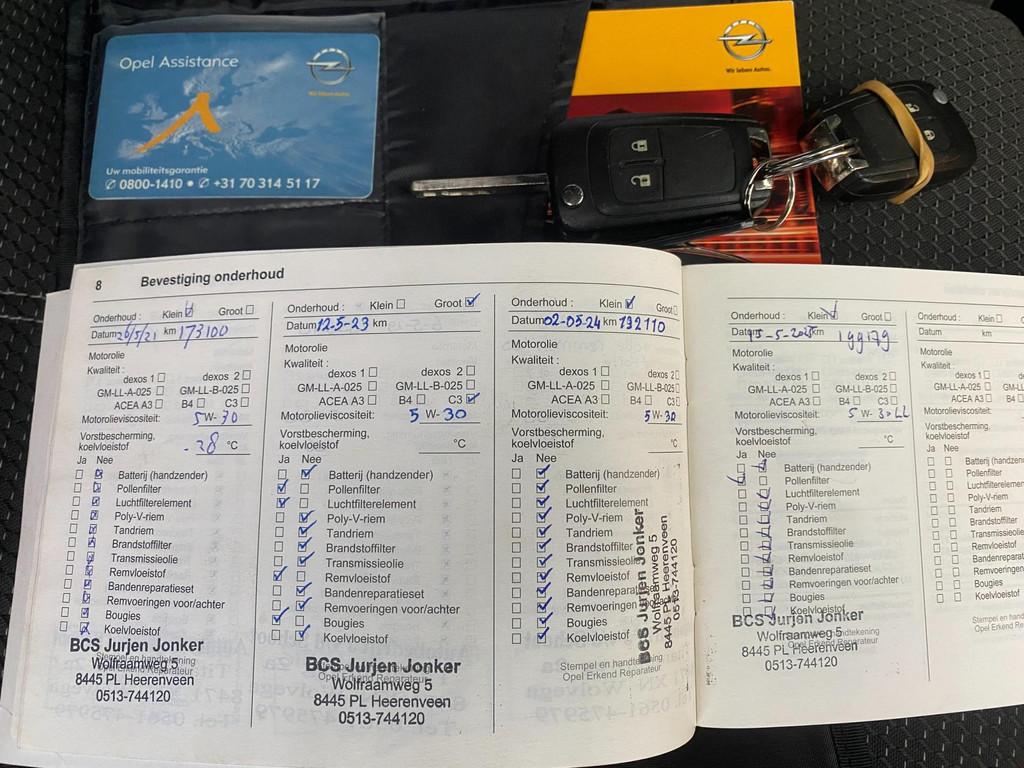 Opel Assistance
Wir leben Autos.
Uw mobiliteitsgarantie
✆ 0800-1410 • ✆ +31 70 314 51 17
Wir leben Autos.
8 Bevestiging onderhoud
Onderhoud : Klein ☑ Groot ☐
Datum 26/5/21 km 173100
Motorolie
Kwaliteit :
dexos 1 ☐ dexos 2 ☐
GM-LL-A-025 ☐ GM-LL-B-025 ☐
ACEA A3 ☐ B4 ☐ C3 ☐
Motorolieviscositeit: 5W-30
Vorstbescherming,
koelvloeistof -38 °C
Ja Nee
☐ ☑ Batterij (handzender)
☐ ☑ Pollenfilter
☐ ☑ Luchtfilterelement
☐ ☑ Poly-V-riem
☐ ☑ Tandriem
☐ ☑ Brandstoffilter
☐ ☑ Transmissieolie
☐ ☑ Remvloeistof
☐ ☑ Bandenreparatieset
☐ ☑ Remvoeringen voor/achter
☐ ☑ Bougies
☐ ☑ Koelvloeistof
BCS Jurjen Jonker
Stempel en handtekening
Wolfraamweg 5
Opel Erkend Reparateur
8445 PL Heerenveen
0513-744120
Onderhoud : Klein ☐ Groot ☑
Datum 12-5-23 km
Motorolie
Kwaliteit :
dexos 1 ☐ dexos 2 ☐
GM-LL-A-025 ☐ GM-LL-B-025 ☐
ACEA A3 ☐ B4 ☐ C3 ☑
Motorolieviscositeit: 5 W-30
Vorstbescherming,
koelvloeistof °C
Ja Nee
☐ ☑ Batterij (handzender)
☑ ☐ Pollenfilter
☑ ☐ Luchtfilterelement
☐ ☑ Poly-V-riem
☐ ☑ Tandriem
☐ ☑ Brandstoffilter
☐ ☑ Transmissieolie
☑ ☐ Remvloeistof
☐ ☑ Bandenreparatieset
☐ ☑ Remvoeringen voor/achter
☑ ☐ Bougies
☐ ☑ Koelvloeistof
BCS Jurjen Jonker
Opel Erkend Reparateur
Wolfraamweg 5
8445 PL Heerenveen
0513-744120
Onderhoud : Klein ☑ Groot ☐
Datum 02-05-24 km 192110
Motorolie
Kwaliteit :
dexos 1 ☐ dexos 2 ☐
GM-LL-A-025 ☐ GM-LL-B-025 ☐
ACEA A3 ☐ B4 ☐ C3 ☐
Motorolieviscositeit: 5 W-30
Vorstbescherming,
koelvloeistof °C
Ja Nee
☐ ☑ Batterij (handzender)
☐ ☑ Pollenfilter
☐ ☑ Luchtfilterelement
☐ ☑ Poly-V-riem
☐ ☑ Tandriem
☐ ☑ Brandstoffilter
☐ ☑ Transmissieolie
☐ ☑ Remvloeistof
☐ ☑ Bandenreparatieset
☐ ☑ Remvoeringen
☐ ☑ Bougies
☐ ☑ Koelvloeistof
Stempel en handtekening
Opel Erkend Reparateur
BCS Jurjen Jonker
Wolfraamweg 5
8445 PL Heerenveen
0513-744120
Onderhoud : Klein ☑ Groot ☐
Datum 15-5-2025 km 199179
Motorolie
Kwaliteit :
dexos 1 ☐ dexos 2 ☐
GM-LL-A-025 ☐ GM-LL-B-025 ☐
ACEA A3 ☐ B4 ☐ C3 ☐
Motorolieviscositeit: 5 W-30LL
Vorstbescherming,
koelvloeistof °C
Ja Nee
☐ ☑ Batterij (handzender)
☑ ☐ Pollenfilter
☐ ☑ Luchtfilterelement
☐ ☑ Poly-V-riem
☐ ☑ Tandriem
☐ ☑ Brandstoffilter
☐ ☑ Transmissieolie
☐ ☑ Remvloeistof
☐ ☑ Bandenreparatieset
☐ ☑ Remvoeringen voor/achter
☐ ☑ Bougies
☐ ☑ Koelvloeistof
BCS Jurjen Jonker
Wolfraamweg 5
Opel Erkend Reparateur
8445 PL Heerenveen
0513-744120
Onderhoud : Klein ☐
Datum km
Motorolie
Kwaliteit :
dexos 1 ☐
GM-LL-A-025 ☐ GM-L
ACEA A3 ☐ B4
Motorolieviscositeit:
Vorstbescherming,
koelvloeistof
Ja Nee
☐ ☐ Batterij (handzen
☐ ☐ Pollenfilter
☐ ☐ Luchtfilterelemen
☐ ☐ Poly-V-riem
☐ ☐ Tandriem
☐ ☐ Brandstoffilter
☐ ☐ Transmissieolie
☐ ☐ Remvloeistof
☐ ☐ Bandenreparat
☐ ☐ Remvoeringen
☐ ☐ Bougies
☐ ☐ Koelvloeistof